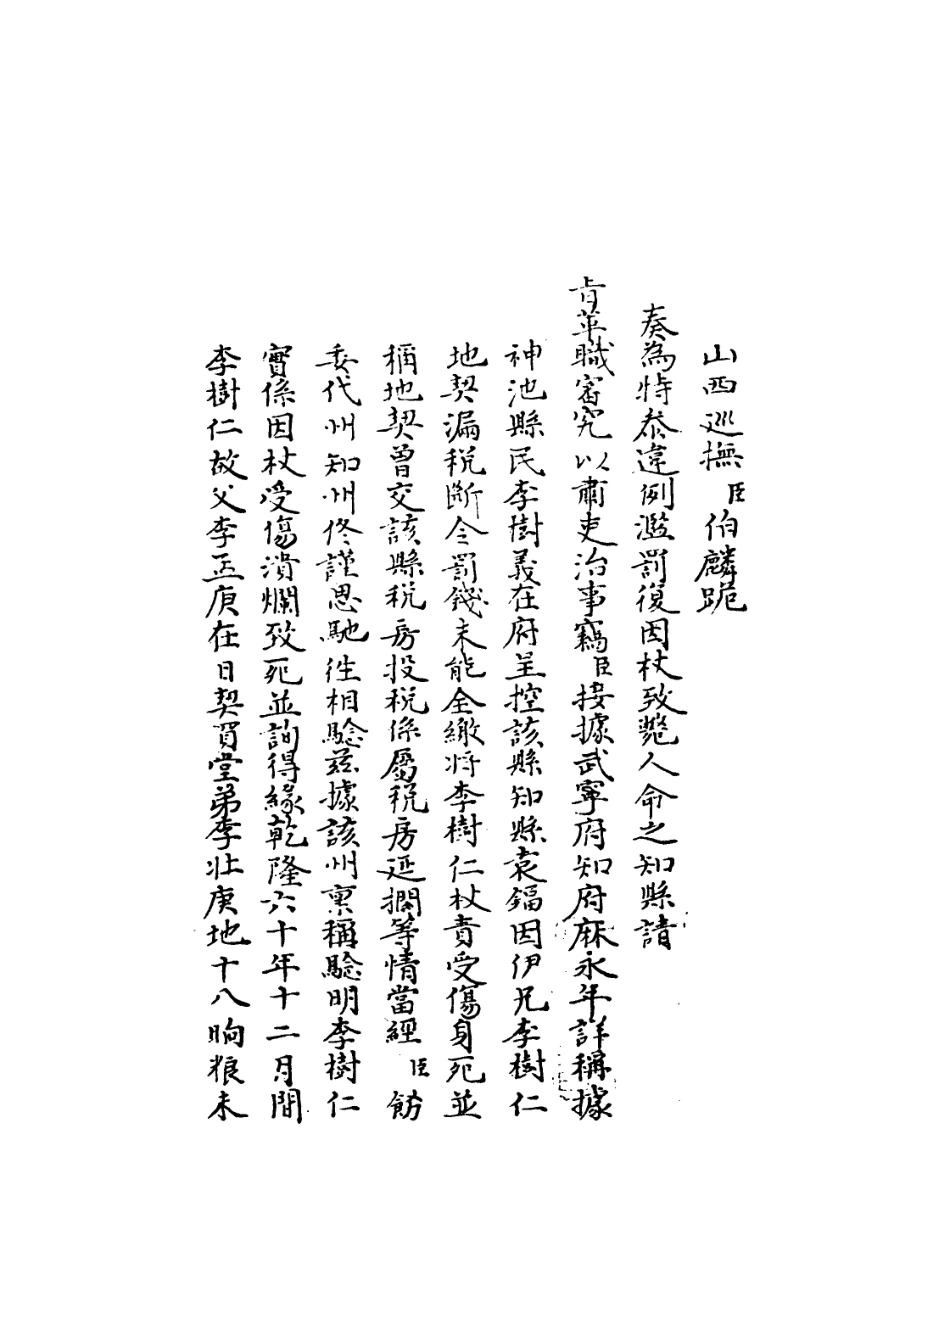 山西巡撫臣伯麟跪
奏為特叅違例濫罰復因杖致斃人命之知縣請
旨革職審究以肅吏治事竊臣接據武寧府知府麻永年詳稱據
神池縣民李樹義在府呈控該縣知縣袁鎘因伊兄李樹仁
地契漏稅斷令罰錢未能全繳将李樹仁杖責受傷身死並
稱地契曾交該縣稅房投稅係屬稅房延擱等情當經臣飭
委代州知州佟謹思馳往相驗茲據該州稟稱驗明李樹仁
實係因杖受傷潰爛致死並詢得緣乾隆六十年十二月間
李樹仁故父李正庚在日契買堂弟李壯庚地十八晌粮未